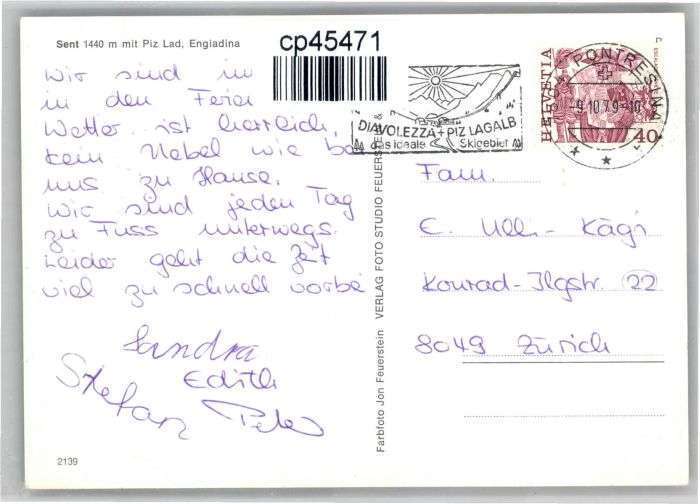 Sent 1440 m mit Piz Lad, Engiadina
cp45471
Wir sind in
in den Ferien
Wetter ist herrlich,
kein Nebel wie bei
uns zu Hause.
Wir sind jeden Tag
zu Fuss unterwegs.
Leider geht die Zeit
viel zu schnell vorbei
Sandra
Edith
Stefan Peter
2139
Farbfoto Jon Feuerstein VERLAG FOTO STUDIO FEUERSTEIN
DIAVOLEZZA + PIZ LAGALB
das ideale Skigebiet
PONTRESINA
-9.10.79-10
HELVETIA
40
Fam.
E. Ulli-Kägi
Konrad-Ilgstr. 22
8049 Zürich